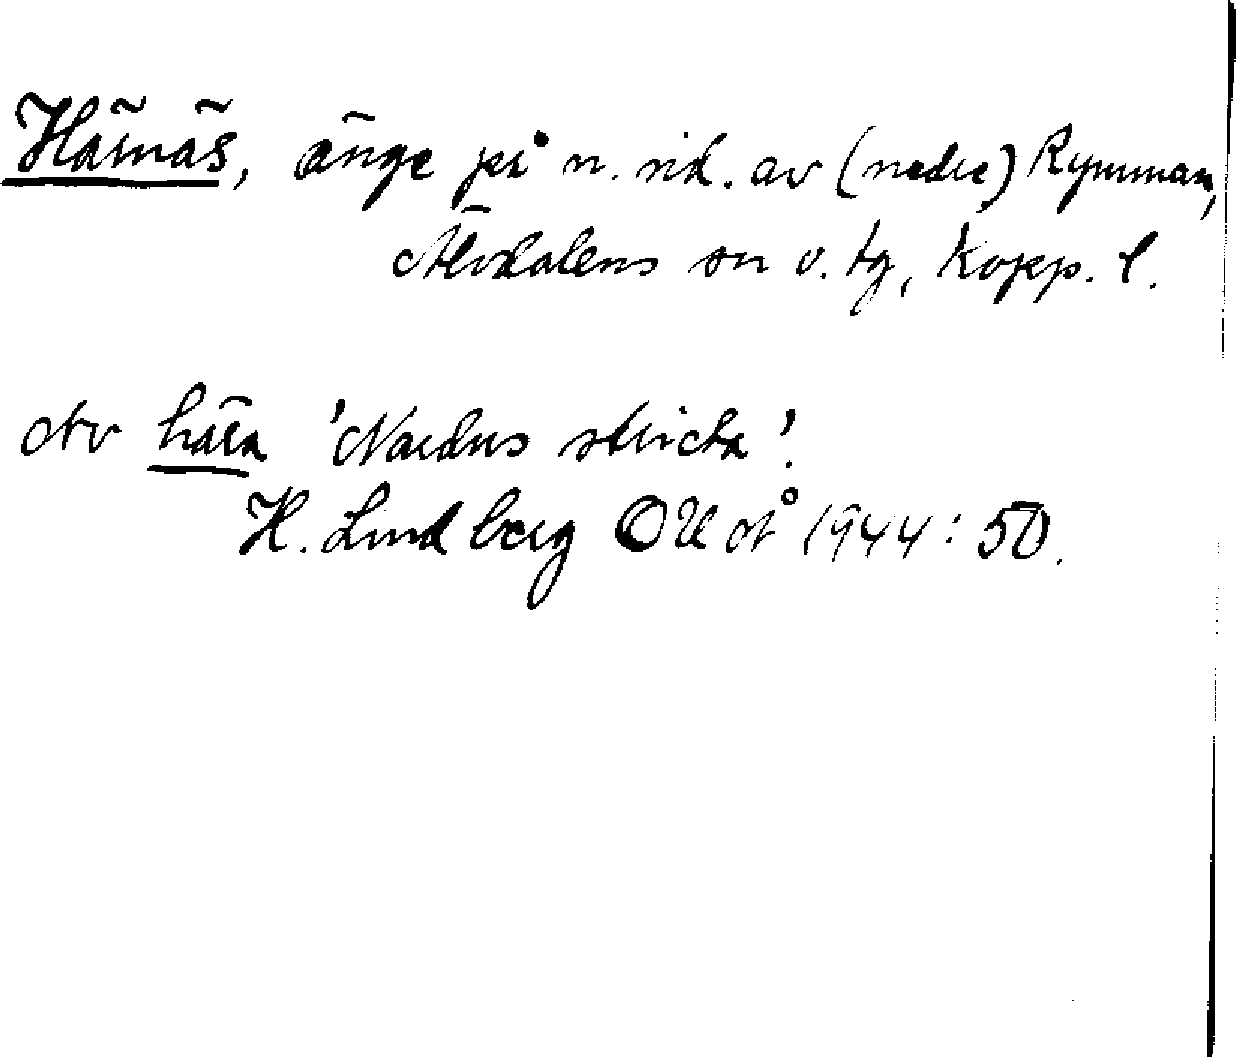 Härnäs, änge på n. sid. av (nedre) Rymman,
Älvdalens sn o. tg, Kopp. l.
Av härä 'Nardus stricta'.
H. Lindberg OUÅ 1944: 50.